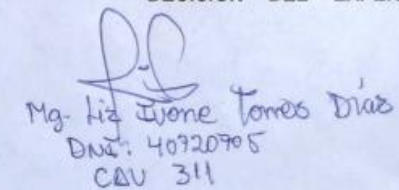 Mg. Liz Ivone Torres Díaz
DNI: 40720905
CAV 311